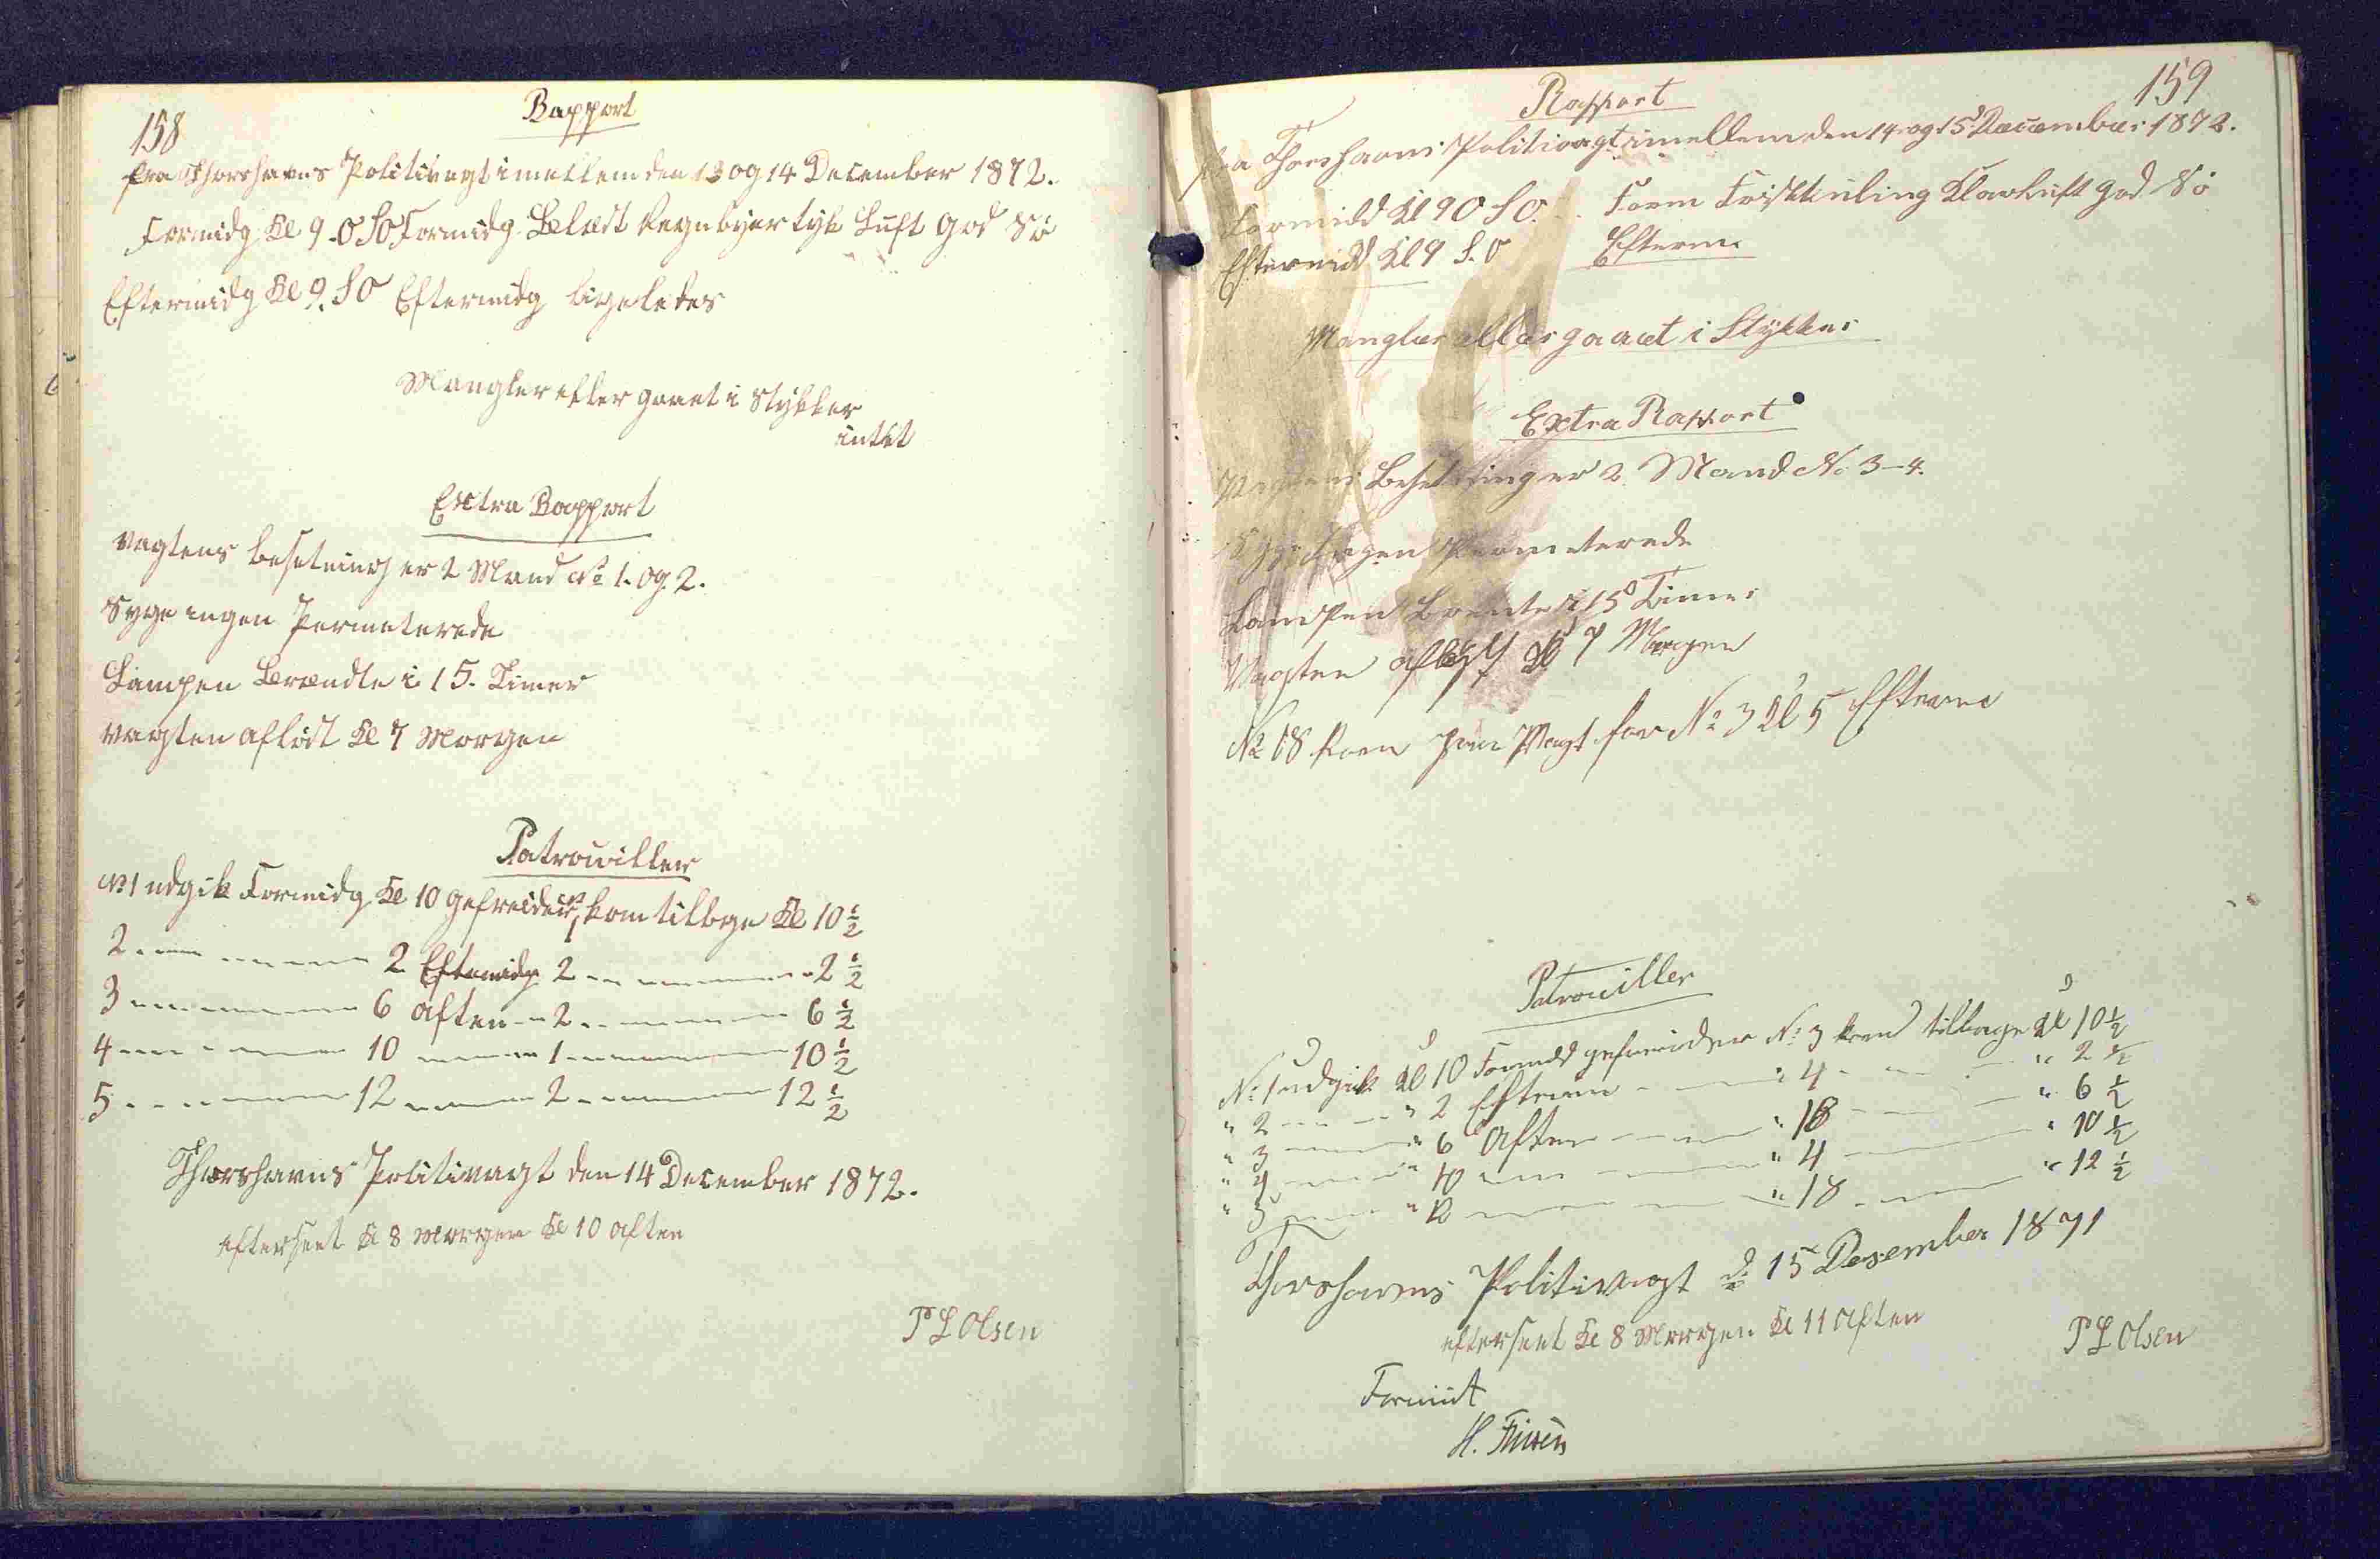 158
Rapport
fra Thorshavns Politivagt imellem den 13 og 14 December 1872.
Formidg Kl 9. O S O Formidg Belæst Regnbyer tyk Luft god Sö
Eftermidg Kl 9. S O Eftermidg ligeledes
Mangler eller gaaet i Stykker
intet
Extra Rapport
Vagtens besetning er 2 Mand No 1. og 2.
Syge ingen Permeterede
Lampen Brændte i 15. Timer
Vagten aflöst Kl 7 Morgen
Patrouiller
No 1 udgik Formidg Kl 10 gefreider No 1 kom tilbge Kl 10 1/2
2 - - - 2 Eftemidg 2 - - - 2 1/2
3 - - - 6 Aften - 2 - - - 6 1/2
4 - - - 10 - - - 1 - - - 10 1/2
5 - - - 12 - - - 2 - - - 12 1/2
Thorshavns Politivagt den 14 December 1872.
efterseet Kl 8 Morgen Kl 10 Aften
P L Olsen
159
Rapport
fra Thorshavns Politivagt imellem den 14 og 15 December 1872.
Formidd Kl 9 O S O. Form Friskkuling Klarluft god Sö
Eftermidd Kl 9 S. O Efterm:
Mangler eller gaaet i Stykker
Extra Rapport
Vagtens Besetning er 2 Mand No 3-4.
Syge Ingen Permeterede
Lampen Brente i 15 Timer
Vagten aflöst Kl 7 Morgen
No 18 kom paa Vagt for No 3 Kl 5 Efterm
Patrouiller
No 1 udgik Kl 10 Formdd gefreider No 3 kom tilbage Kl 10 1/2
" 2 - - - " 2 Efterm - - - " 4 - - - " 2 1/2
" 3 - - - " 6 Aften - - - " 18 - - - " 6 1/2
" 4 - - - " 10 - - - " 4 - - - " 10 1/2
" 5 - - - " 12 - - - " 18 - - - " 12 1/2
Thorshavns Politivagt d. 15 Desember 1871
efterseet Kl 8 Morgen Kl 11 Aften
P L Olsen
H.